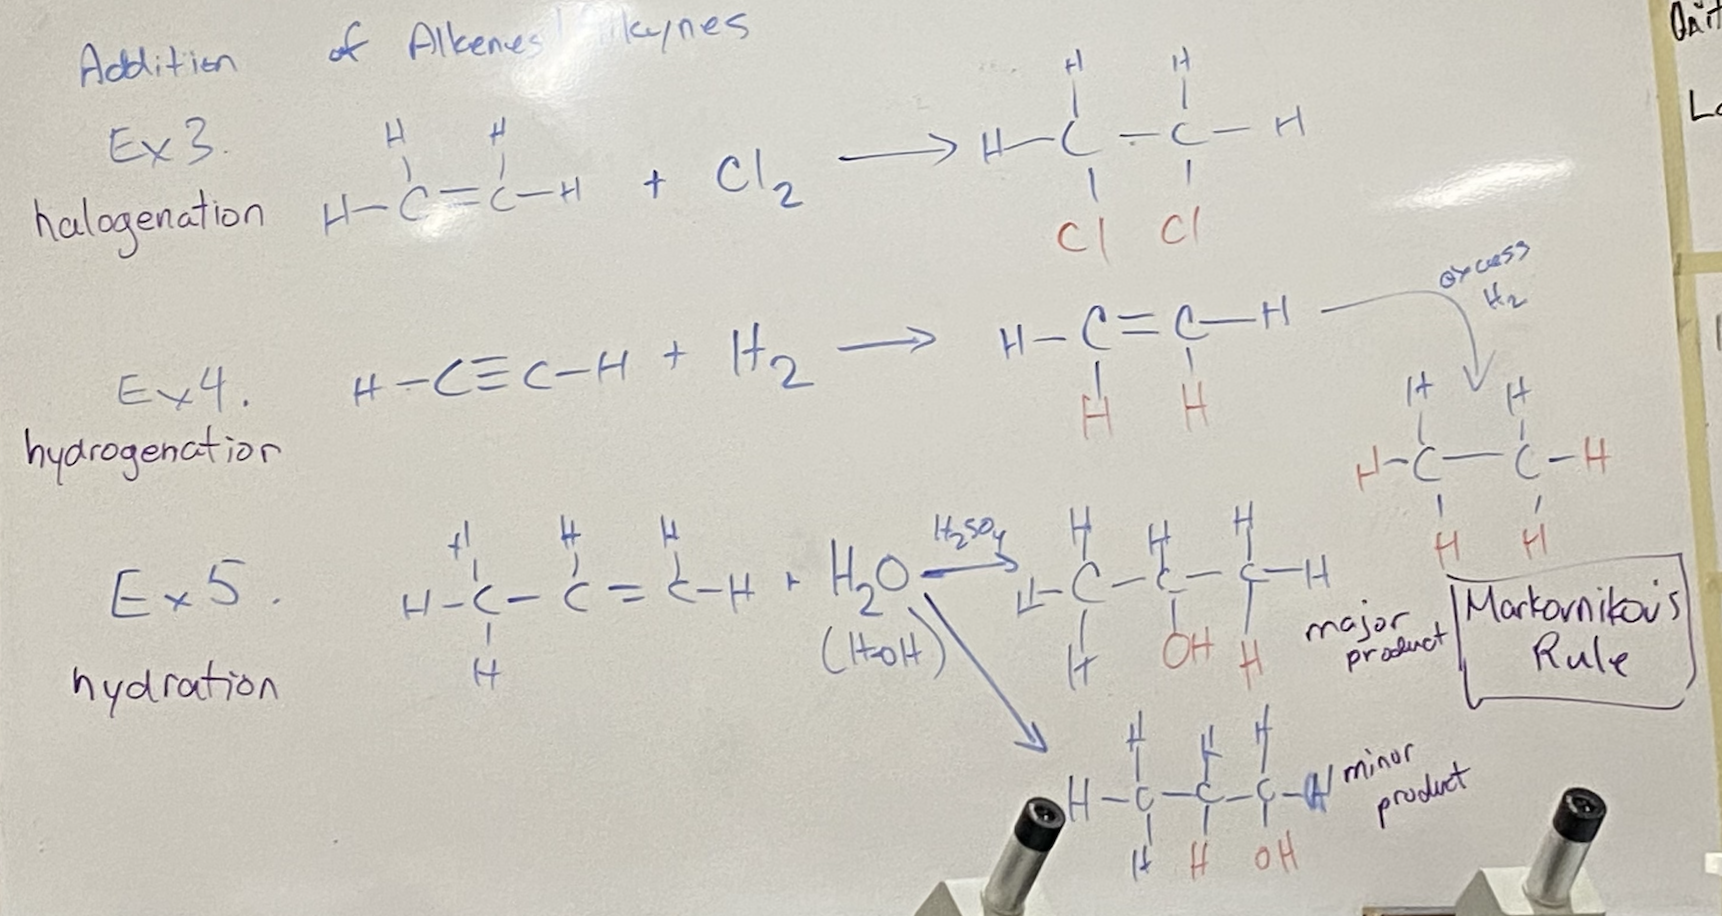 Addition of Alkenes/ Alkynes
Ex3.
halogenation
H H
H-C=C-H + Cl2 → H-C-C-H
H H
Cl Cl
Ex4.
hydrogenation
H-C≡C-H + H2 → H-C=C-H
H H
excess
H2
H H
H-C-C-H
H H
Ex5.
hydration
H H H
H-C-C=C-H + H2O
H
(HOH)
H2SO4
H H H
H-C-C-C-H
H OH H
major
product
Markovnikov's
Rule
H H H
H-C-C-C-H
H H OH
minor
product